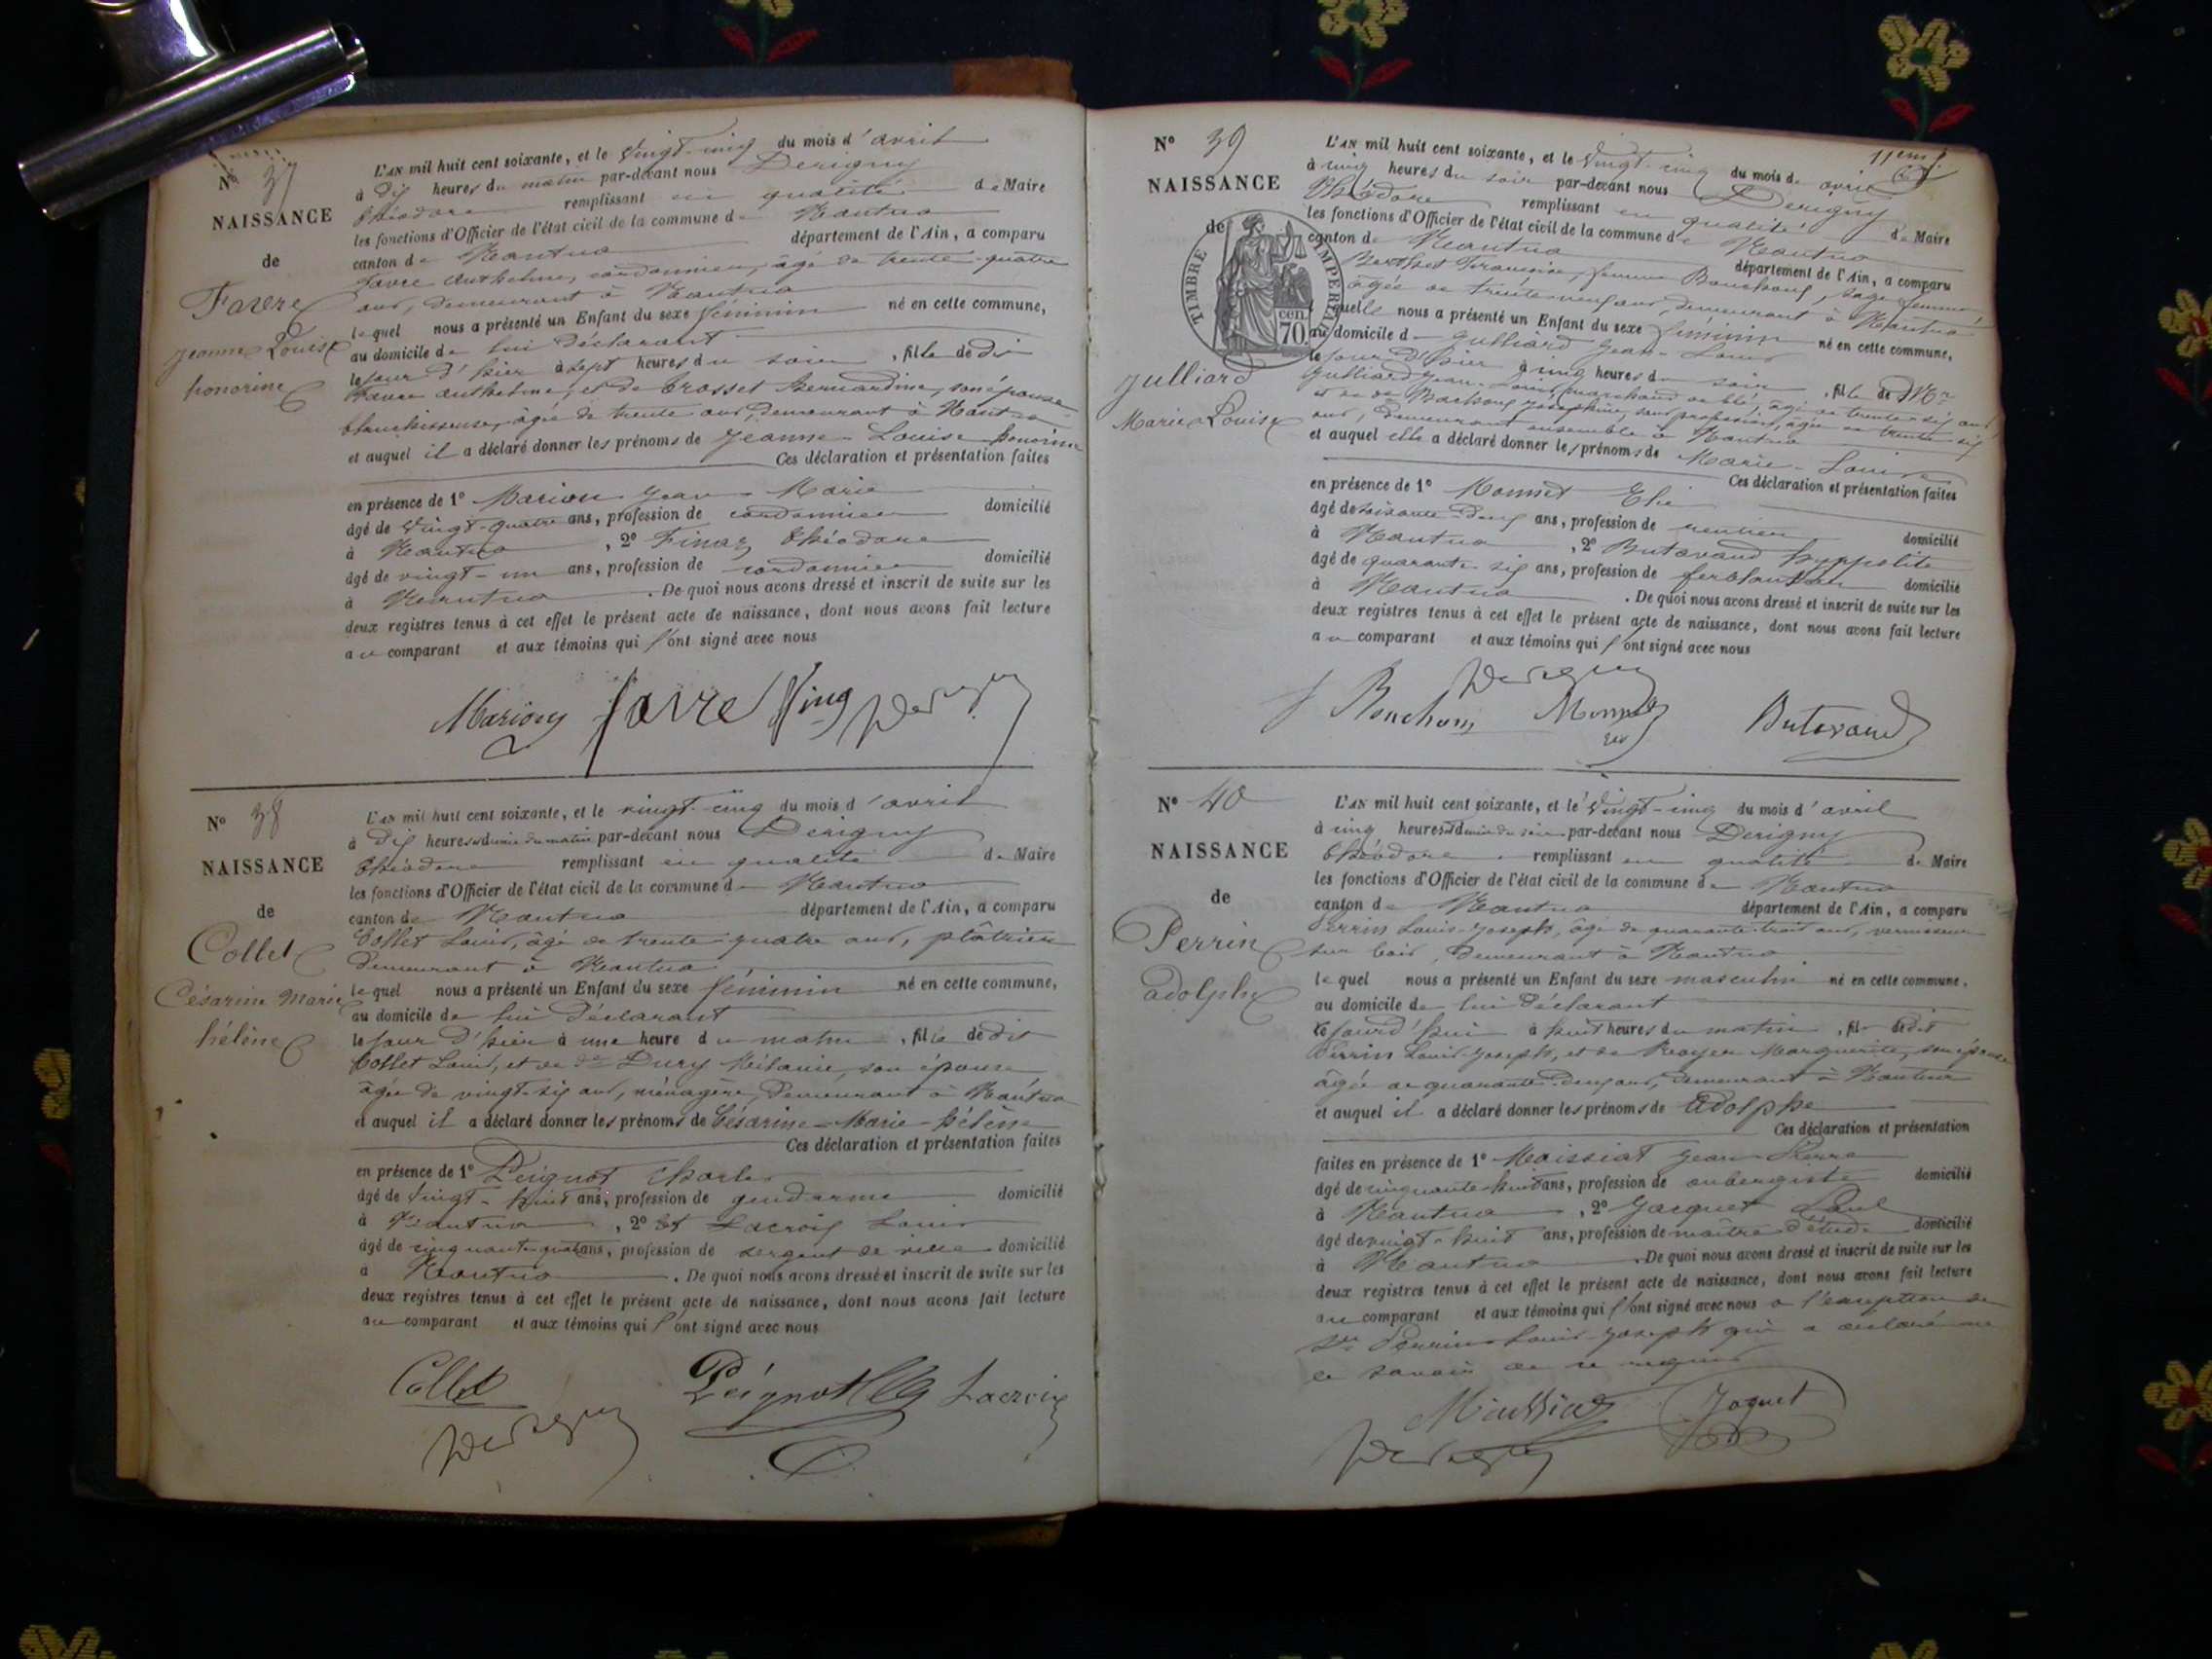 N° 37
NAISSANCE
de
Favre
Jeanne Louise
honorine
L'AN mil huit cent soixante, et le vingt-cinq du mois d'avril
à dix heures du matin par-devant nous Derigny
Théodore remplissant en qualité de Maire
les fonctions d'Officier de l'état civil de la commune de Nantua
canton de Nantua département de l'Ain, a comparu
Favre Anthelme, cordonnier, âgé de trente-quatre
ans, demeurant à Nantua
lequel nous a présenté un Enfant du sexe féminin né en cette commune,
au domicile de lui déclarant
le jour d'hier à sept heures du soir, fille de dit
Favre Anthelme, et de Brosset Bernardine, son épouse
blanchisseuse, âgée de trente ans, demeurant à Nantua
et auquel il a déclaré donner les prénoms de Jeanne-Louise honorine
Ces déclaration et présentation faites
en présence de 1° Marion Jean-Marie
âgé de vingt-quatre ans, profession de cordonnier domicilié
à Nantua, 2° Finaz Théodore
âgé de vingt-un ans, profession de cordonnier domicilié
à Nantua. De quoi nous avons dressé et inscrit de suite sur les
deux registres tenus à cet effet le présent acte de naissance, dont nous avons fait lecture
au comparant et aux témoins qui l'ont signé avec nous
Marion favre Derigny
N° 38
NAISSANCE
de
Collet
Césarine Marie
hélène
L'AN mil huit cent soixante, et le vingt-cinq du mois d'avril
à dix heures & demie du matin par-devant nous Derigny
Théodore remplissant en qualité de Maire
les fonctions d'Officier de l'état civil de la commune de Nantua
canton de Nantua département de l'Ain, a comparu
Collet Louis, âgé de trente-quatre ans, plâtrier
demeurant à Nantua
lequel nous a présenté un Enfant du sexe féminin né en cette commune,
au domicile de lui déclarant
le jour d'hier à une heure du matin, fille de dit
Collet Louis, et de de Dury Mélanie, son épouse
âgée de vingt-six ans, ménagère, demeurant à Nantua
et auquel il a déclaré donner les prénoms de Césarine-Marie-hélène
Ces déclaration et présentation faites
en présence de 1° Peignot Charles
âgé de vingt-huit ans, profession de gendarme domicilié
à Nantua, 2° et Lacroix Louis
âgé de cinquante-quatre ans, profession de sergent de ville domicilié
à Nantua. De quoi nous avons dressé et inscrit de suite sur les
deux registres tenus à cet effet le présent acte de naissance, dont nous avons fait lecture
au comparant et aux témoins qui l'ont signé avec nous
Collet Peignot Lacroix
Derigny
11eme f.
N° 39
NAISSANCE
de
TIMBRE IMPERIAL
70 cen.
Julliard
Marie Louise
L'AN mil huit cent soixante, et le vingt-cinq du mois de avril
à cinq heures du soir par-devant nous Derigny
Théodore remplissant en qualité de Maire
les fonctions d'Officier de l'état civil de la commune de Nantua
canton de Nantua département de l'Ain, a comparu
Berthet Françoise, femme Bouchoux, sage-femme,
âgée de trente-neuf ans, demeurant à Nantua
laquelle nous a présenté un Enfant du sexe féminin né en cette commune,
au domicile de Julliard Jean-Louis
le jour d'hier à cinq heures du soir, fille de Mr
Julliard Jean-Louis, marchand de blé, âgé de trente-six ans,
et de de Bachoux Joséphine, sans profession, âgée de trente-six
ans, demeurant ensemble à Nantua
et auquel elle a déclaré donner les prénoms de Marie-Louise
Ces déclaration et présentation faites
en présence de 1° Monnet Elie
âgé de soixante-deux ans, profession de rentier domicilié
à Nantua, 2° Butavand hyppolite
âgé de quarante-six ans, profession de ferblantier domicilié
à Nantua. De quoi nous avons dressé et inscrit de suite sur les
deux registres tenus à cet effet le présent acte de naissance, dont nous avons fait lecture
au comparant et aux témoins qui l'ont signé avec nous
Derigny
f Bouchoux Monnet Butavand
N° 40
NAISSANCE
de
Perrin
adolphe
L'AN mil huit cent soixante, et le vingt-cinq du mois d'avril
à cinq heures & demie du soir par-devant nous Derigny
Théodore remplissant en qualité de Maire
les fonctions d'Officier de l'état civil de la commune de Nantua
canton de Nantua département de l'Ain, a comparu
Perrin Louis-Joseph, âgé de quarante-trois ans, vernisseur
sur bois, demeurant à Nantua
lequel nous a présenté un Enfant du sexe masculin né en cette commune,
au domicile de lui déclarant
ce jourd'hui à huit heures du matin, fils dudit
Perrin Louis-Joseph, et de Royer Marguerite, son épouse
âgée de quarante-deux ans, demeurant à Nantua
et auquel il a déclaré donner les prénoms de Adolphe
Ces déclaration et présentation
faites en présence de 1° Maissiat Jean-Pierre
âgé de cinquante-huit ans, profession de aubergiste domicilié
à Nantua, 2° Jacquet Paul
âgé de vingt-huit ans, profession de maître d'étude domicilié
à Nantua. De quoi nous avons dressé et inscrit de suite sur les
deux registres tenus à cet effet le présent acte de naissance, dont nous avons fait lecture
au comparant et aux témoins qui l'ont signé avec nous à l'exception de
Sr Perrin Louis-Joseph qui a déclaré ne
le savoir de ce requis
Maissiat Jaquet
Derigny